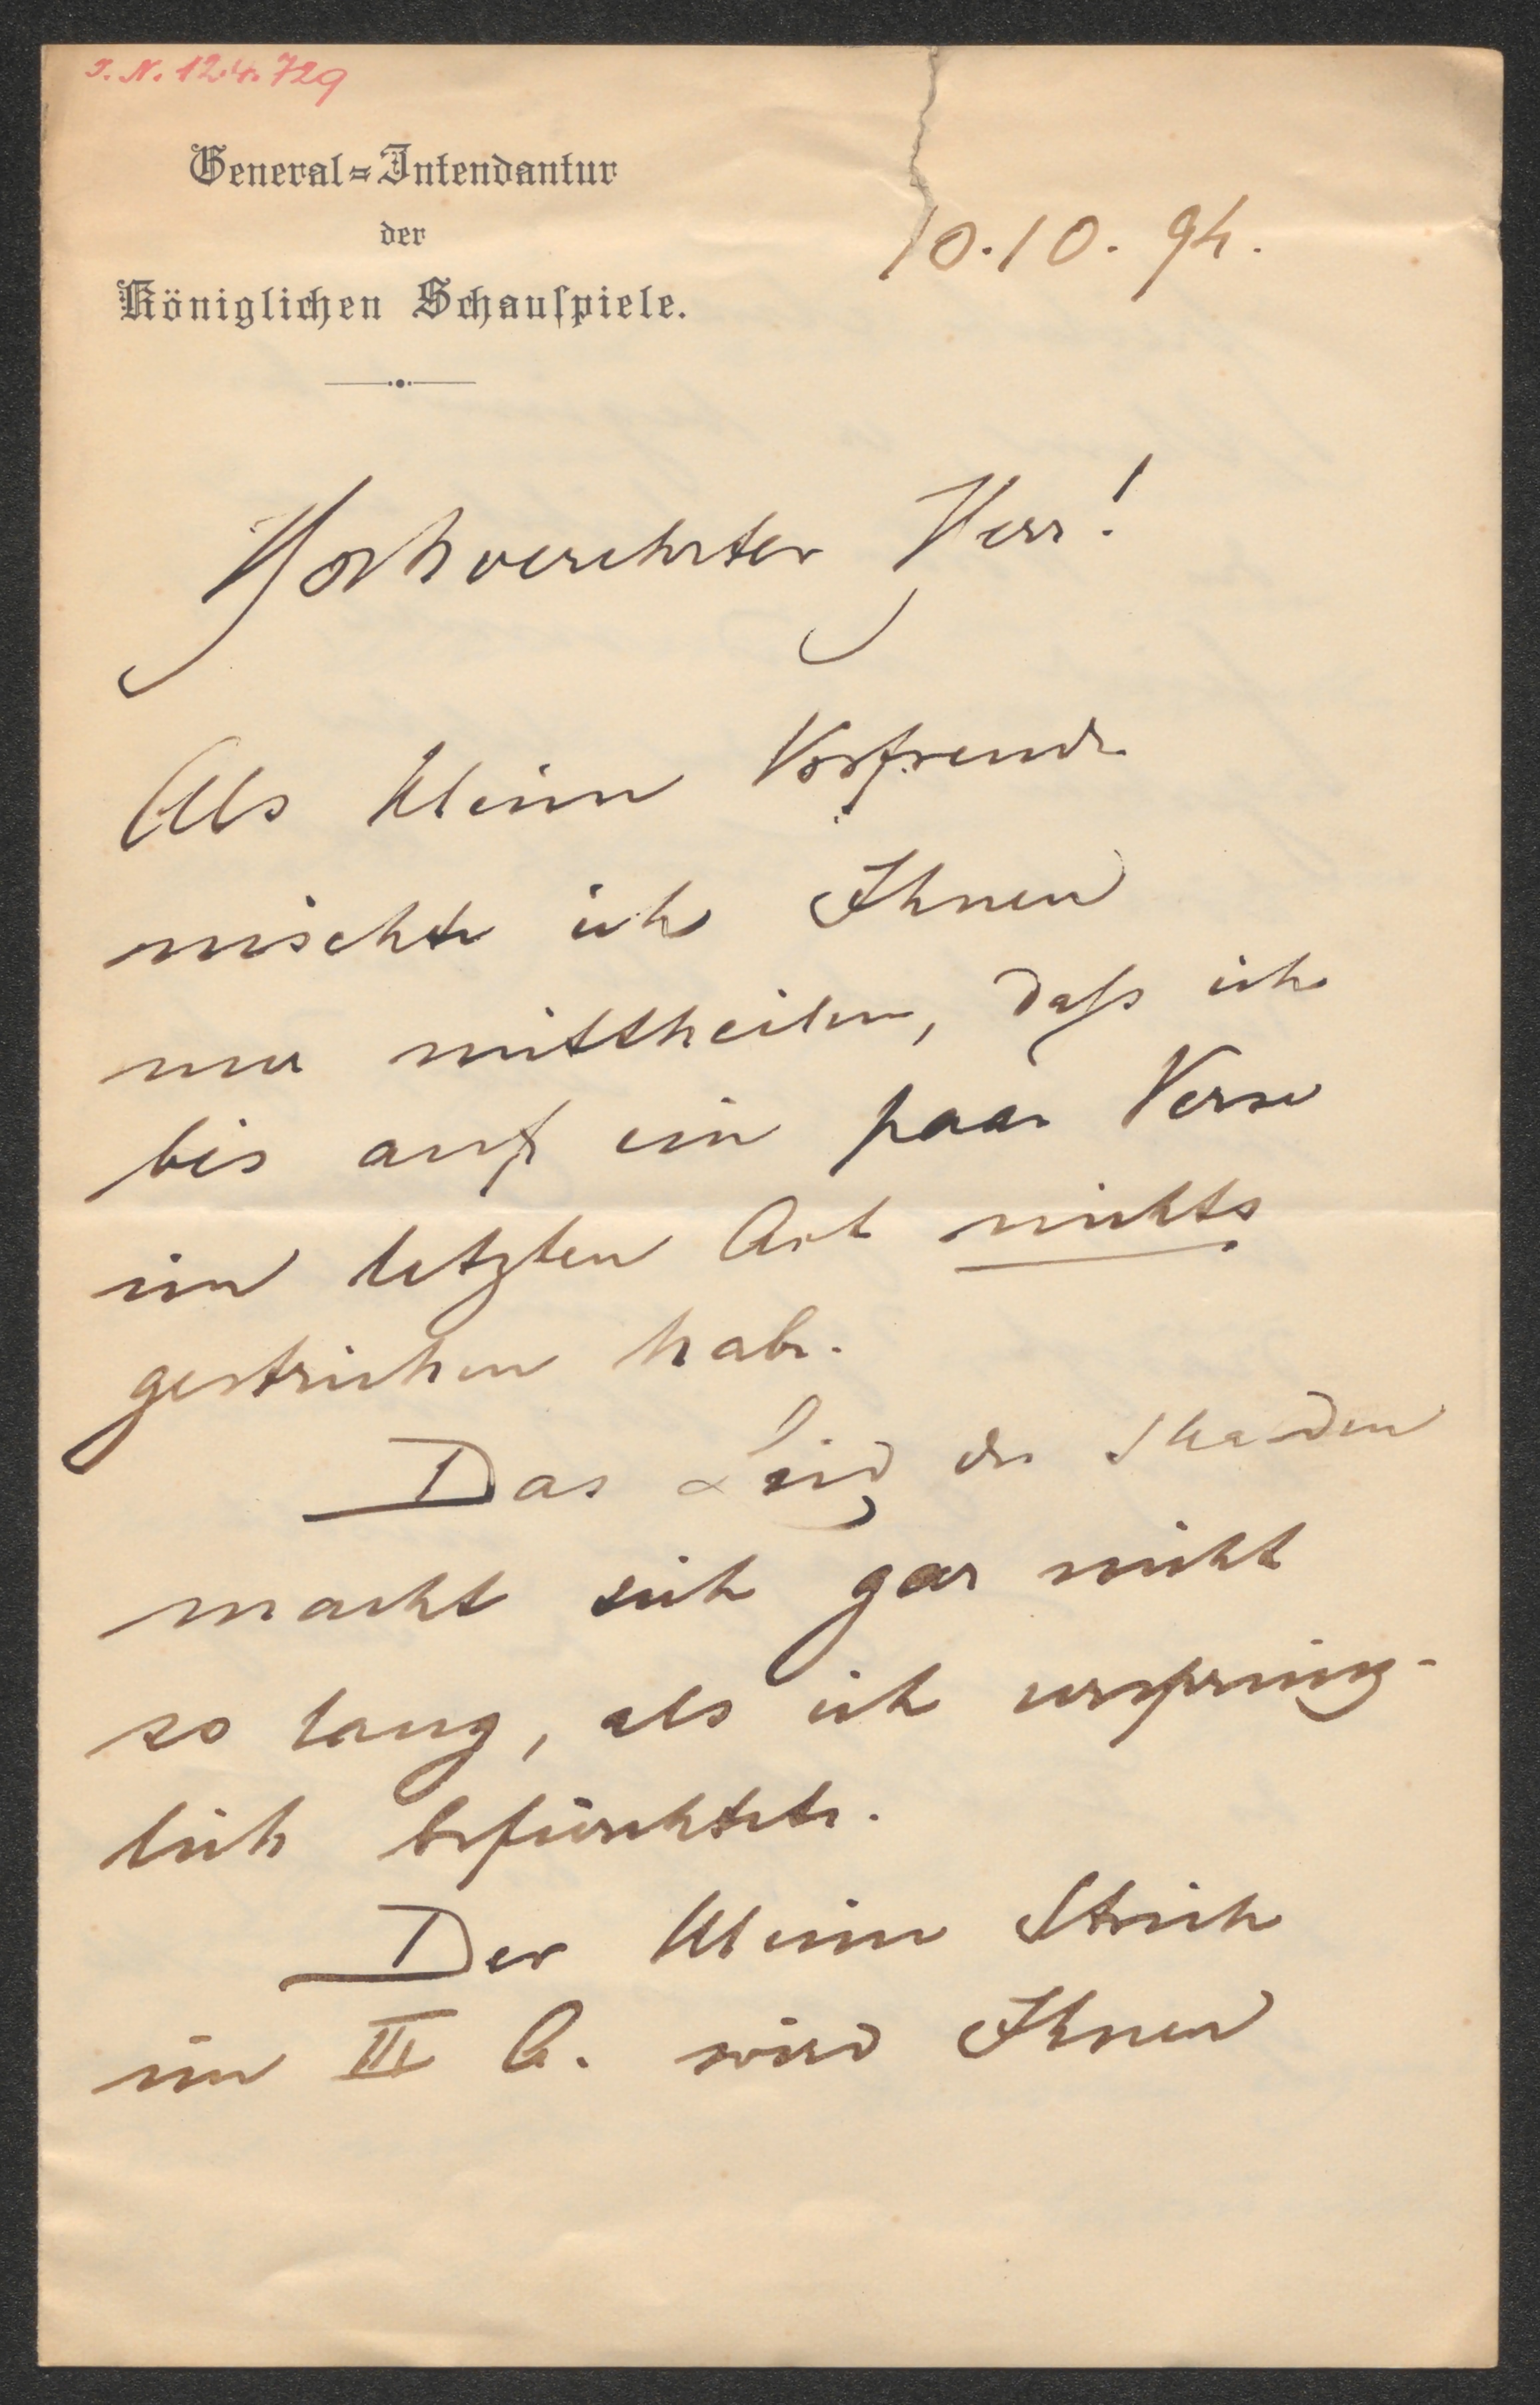 I. N. 124.729
General-Intendantur
der
Königlichen Schauſpiele.
10.10.94.
Hochverehrter Herr!
Als kleine Vorfreude
möchte ich Ihnen
nur mittheilen, daß ich
bis auf ein paar Verse
im letzten Act nichts
gestrichen habe.
Das Lied der
macht sich gar nicht
so lang, als ich ursprüng-
lich befürchtete.
Der kleine Strich
im III A. wird Ihnen